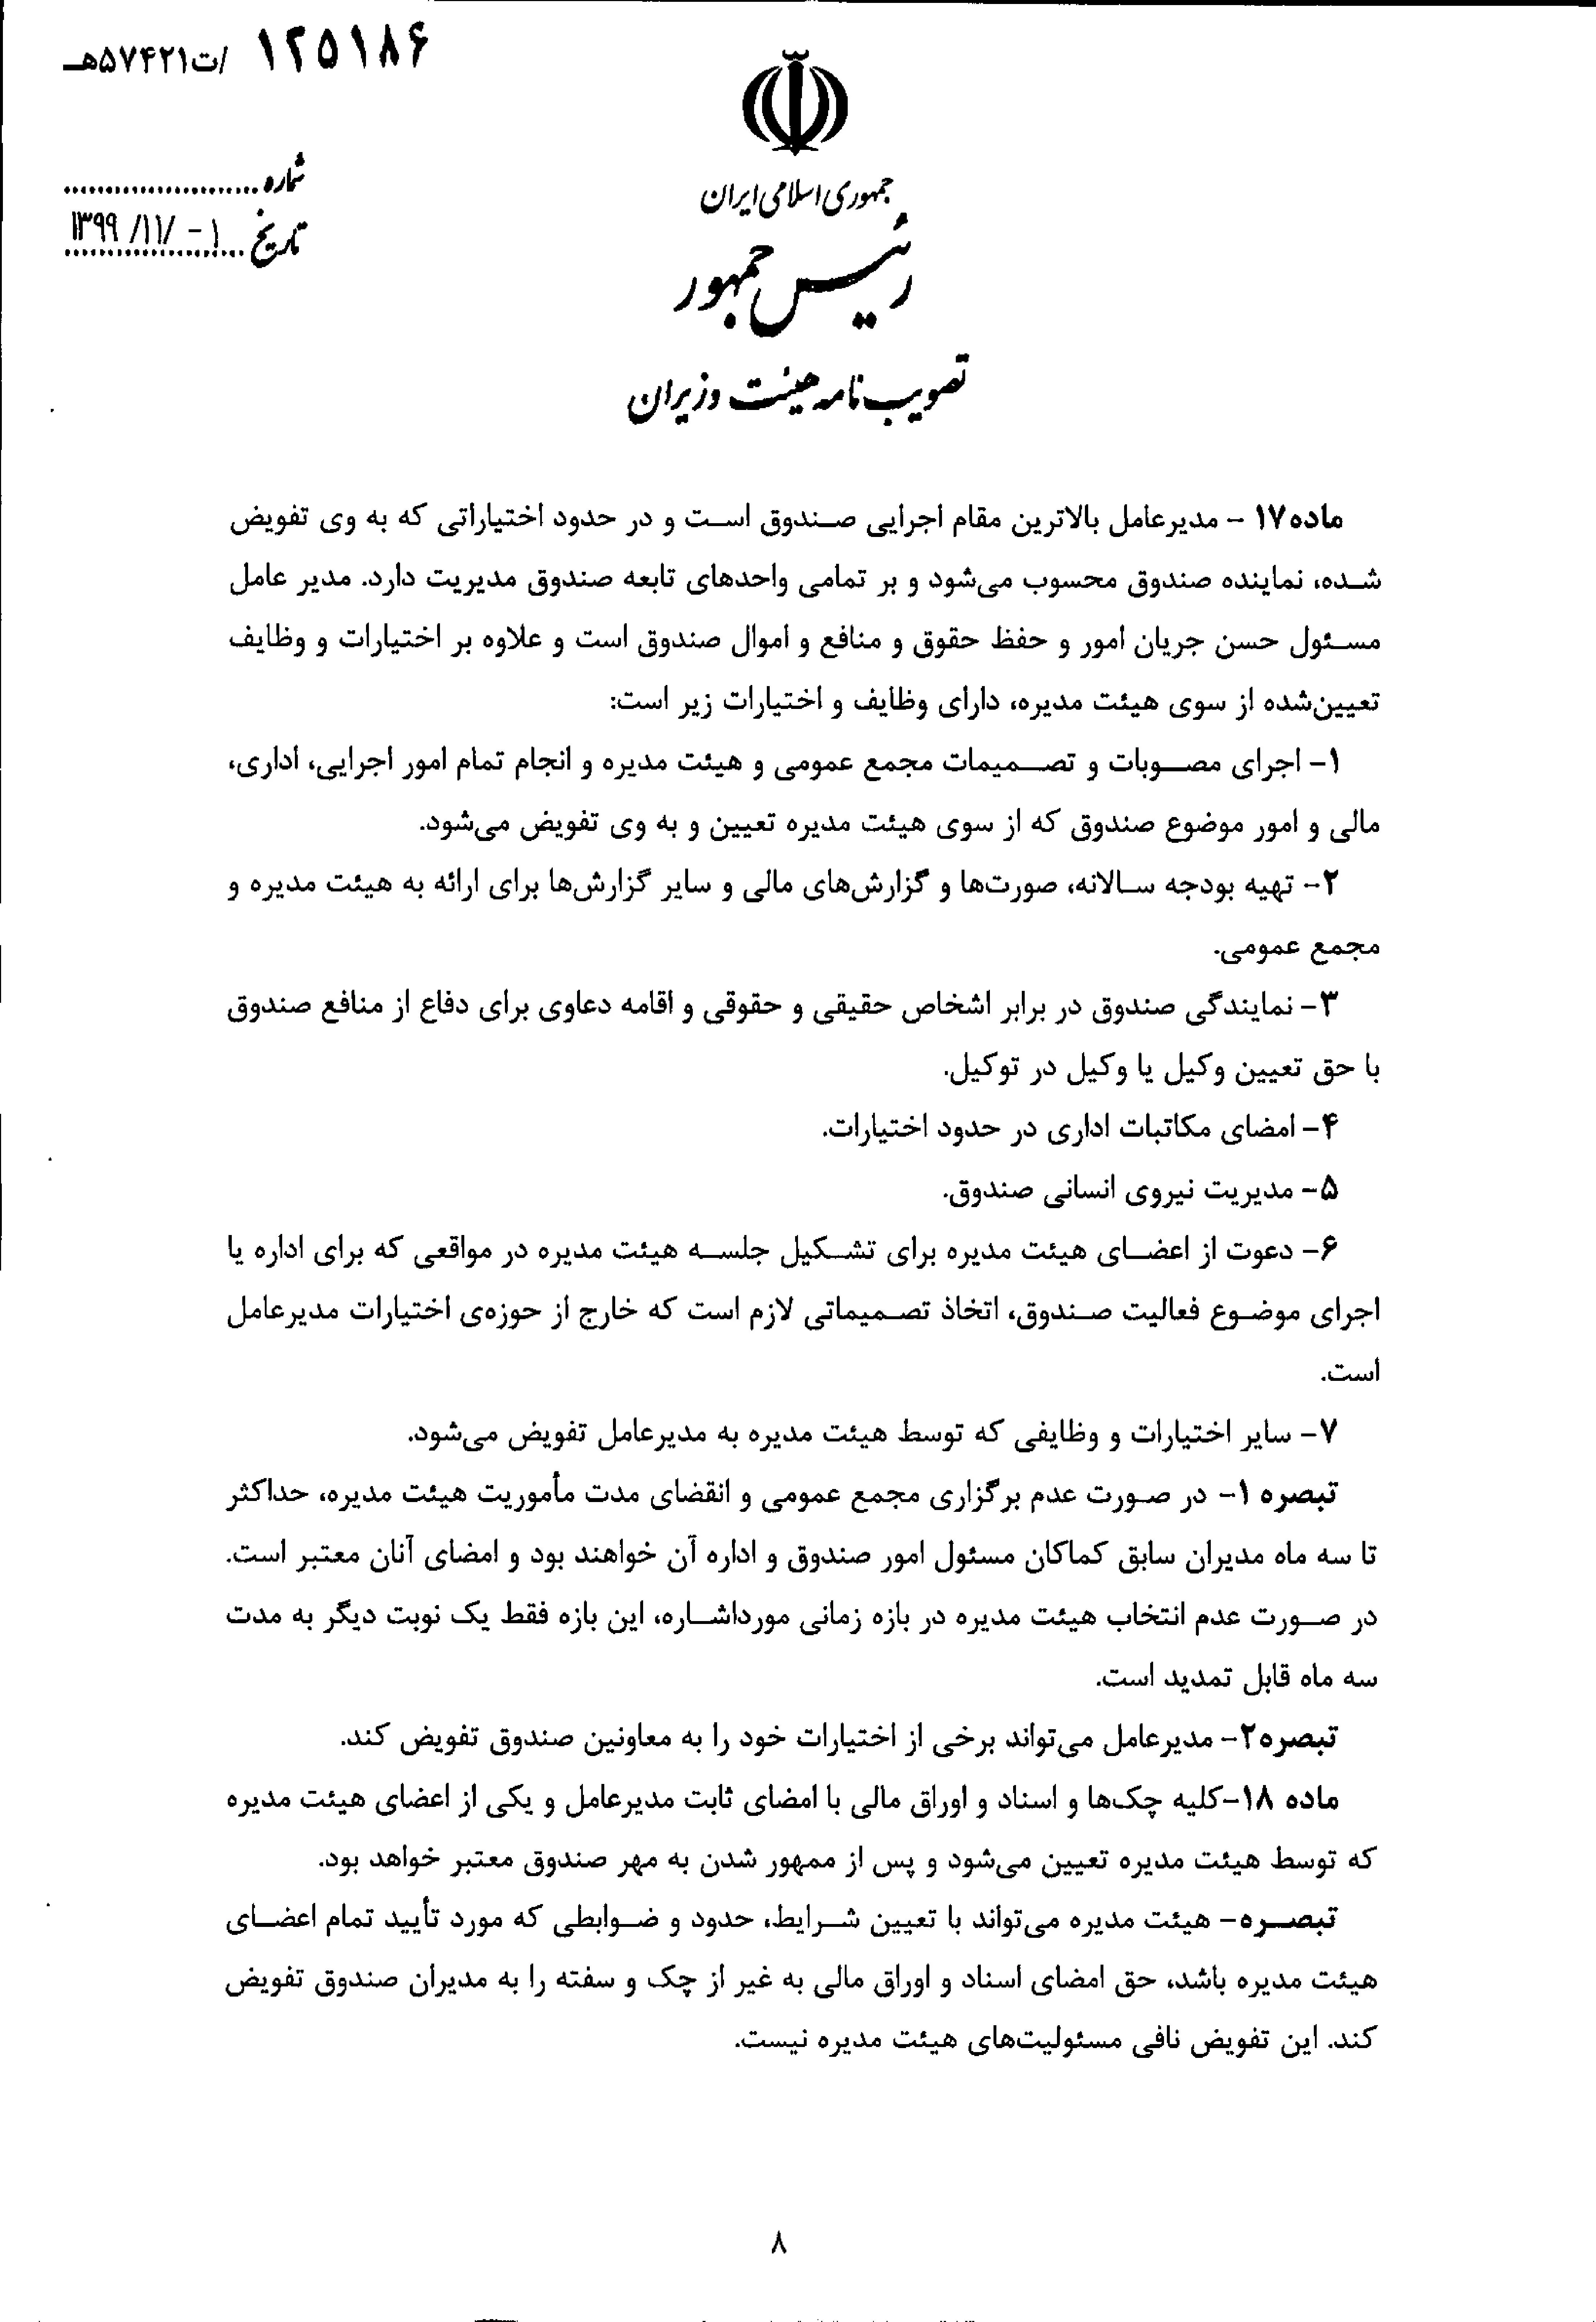 ۱۲۵۱۸۶ /ت۵۷۴۲۱هـ
شماره
تاریخ ۱۳۹۹/۱۱/-۱
جمهوری اسلامی ایران
رئیس جمهور
تصویب نامه هیئت وزیران
ماده۱۷ - مدیرعامل بالاترین مقام اجرایی صندوق است و در حدود اختیاراتی که به وی تفویض
شده، نماینده صندوق محسوب می‌شود و بر تمامی واحدهای تابعه صندوق مدیریت دارد. مدیر عامل
مسئول حسن جریان امور و حفظ حقوق و منافع و اموال صندوق است و علاوه بر اختیارات و وظایف
تعیین‌شده از سوی هیئت مدیره، دارای وظایف و اختیارات زیر است:
۱- اجرای مصوبات و تصمیمات مجمع عمومی و هیئت مدیره و انجام تمام امور اجرایی، اداری،
مالی و امور موضوع صندوق که از سوی هیئت مدیره تعیین و به وی تفویض می‌شود.
۲- تهیه بودجه سالانه، صورت‌ها و گزارش‌های مالی و سایر گزارش‌ها برای ارائه به هیئت مدیره و
مجمع عمومی.
۳- نمایندگی صندوق در برابر اشخاص حقیقی و حقوقی و اقامه دعاوی برای دفاع از منافع صندوق
با حق تعیین وکیل یا وکیل در توکیل.
۴- امضای مکاتبات اداری در حدود اختیارات.
۵- مدیریت نیروی انسانی صندوق.
۶- دعوت از اعضای هیئت مدیره برای تشکیل جلسه هیئت مدیره در مواقعی که برای اداره یا
اجرای موضوع فعالیت صندوق، اتخاذ تصمیماتی لازم است که خارج از حوزه‌ی اختیارات مدیرعامل
است.
۷- سایر اختیارات و وظایفی که توسط هیئت مدیره به مدیرعامل تفویض می‌شود.
تبصره ۱- در صورت عدم برگزاری مجمع عمومی و انقضای مدت مأموریت هیئت مدیره، حداکثر
تا سه ماه مدیران سابق کماکان مسئول امور صندوق و اداره آن خواهند بود و امضای آنان معتبر است.
در صورت عدم انتخاب هیئت مدیره در بازه زمانی مورداشاره، این بازه فقط یک نوبت دیگر به مدت
سه ماه قابل تمدید است.
تبصره۲- مدیرعامل می‌تواند برخی از اختیارات خود را به معاونین صندوق تفویض کند.
ماده ۱۸-کلیه چک‌ها و اسناد و اوراق مالی با امضای ثابت مدیرعامل و یکی از اعضای هیئت مدیره
که توسط هیئت مدیره تعیین می‌شود و پس از ممهور شدن به مهر صندوق معتبر خواهد بود.
تبصره- هیئت مدیره می‌تواند با تعیین شرایط، حدود و ضوابطی که مورد تأیید تمام اعضای
هیئت مدیره باشد، حق امضای اسناد و اوراق مالی به غیر از چک و سفته را به مدیران صندوق تفویض
کند. این تفویض نافی مسئولیت‌های هیئت مدیره نیست.
۸